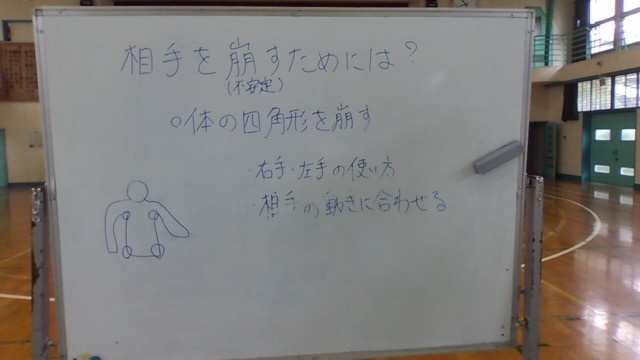 相手を崩すためには?
(不安定)
○体の四角形を崩す
・右手・左手の使い方
・相手の動きに合わせる